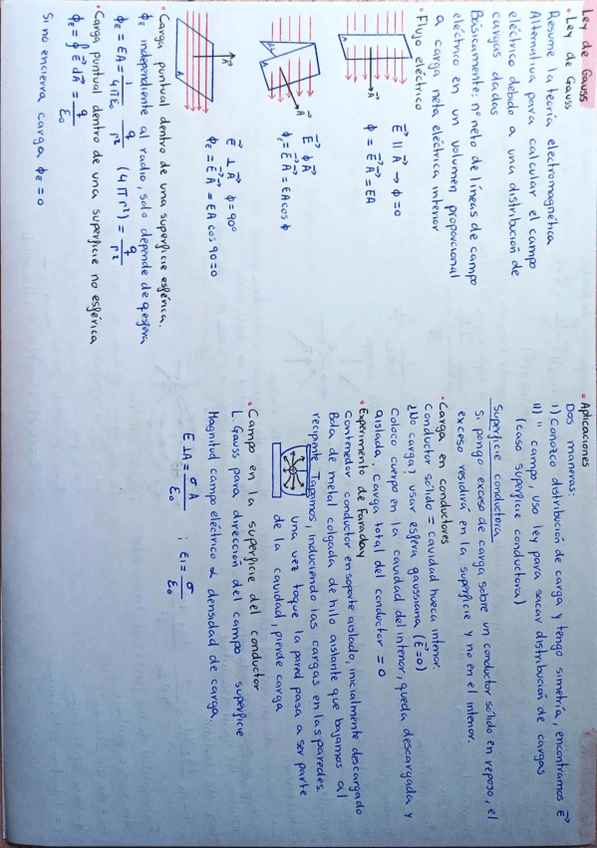 Ley de Gauss
• Ley de Gauss
Resume la teoría electromagnética
Alternativa para calcular el campo
eléctrico debido a una distribución de
cargas dadas
Básicamente: nº neto de líneas de campo
eléctrico en un volumen proporcional
a carga neta eléctrica interior
• Flujo eléctrico
A
A⃗
E⃗ || A⃗ → ϕ = 0
ϕ = E⃗A⃗ = EA
A
A⃗
E⃗ ϕ A⃗
ϕE = E⃗A⃗ = EA cos ϕ
A
A⃗
E⃗ ⊥ A⃗ ϕ = 90º
ϕE = E⃗A⃗ = EA cos 90 = 0
• Carga puntual dentro de una superficie esférica.
ϕE independiente al radio, solo depende de q esfera
ϕE = EA = 1/4πε0 q/r² (4πr²) = q/r²
• Carga puntual dentro de una superficie no esférica
ϕE = ∮ E⃗ dA⃗ = q/ε0
Si no encierra carga ϕE = 0
• Aplicaciones
Dos maneras:
I) Conozco distribución de carga y tengo simetría, encontramos E⃗
II) " campo, uso ley para sacar distribución de cargas
(caso superficie conductora)
Superficie conductora
Si pongo exceso de carga sobre un conductor sólido en reposo, el
exceso residirá en la superficie y no en el interior.
• Carga en conductores
Conductor sólido = cavidad hueca interior
¿No carga? usar esfera gaussiana (E⃗=0)
Coloco cuerpo en la cavidad del interior, queda descargada y
aislada. Carga total del conductor = 0
• Experimento de Faraday
Contenedor conductor en soporte aislado, inicialmente descargado
Bola de metal colgada de hilo aislante que bajamos al
recipiente. Tapamos, induciendo las cargas en las paredes.
una vez toque la pared pasa a ser parte
de la cavidad, pierde carga
• Campo en la superficie del conductor
L. Gauss para dirección del campo superficie
Magnitud campo eléctrico α densidad de carga.
E⊥A = σA/ε0 ; E⊥ = σ/ε0